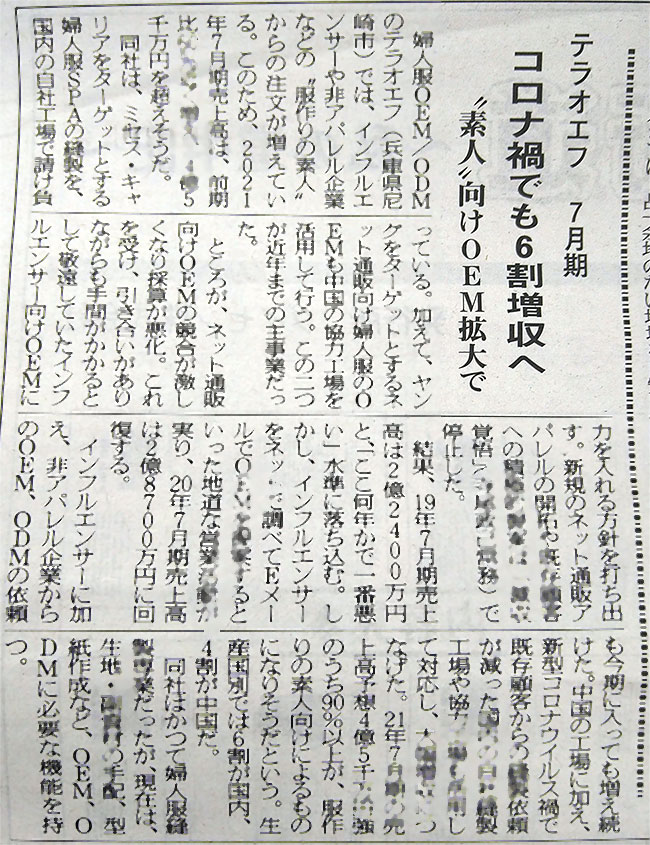 テラオエフ 7月期
コロナ禍でも6割増収へ
〝素人〟向けOEM拡大で
婦人服OEM/ODM
のテラオエフ(兵庫県尼
崎市)では、インフルエ
ンサーや非アパレル企業
などの〝服作りの素人〟
からの注文が増えてい
る。このため、2021
年7月期売上高は、前期
比 4億5
千万円を超えそうだ。
同社は、ミセス・キャ
リアをターゲットとする
婦人服SPAの縫製を、
国内の自社工場で請け負
っている。加えて、ヤン
グをターゲットとするネ
ット通販向け婦人服のO
EMも中国の協力工場を
活用して行う。この二つ
が近年までの主事業だっ
た。
ところが、ネット通販
向けOEMの競合が激し
くなり採算が悪化。これ
を受け、引き合いがあり
ながらも手間がかかると
して敬遠していたインフ
ルエンサー向けOEMに
力を入れる方針を打ち出
す。新規のネット通販ア
パレルの開拓や既存顧客
への
覚悟」 で
停止した。
結果、19年7月期売上
高は2億2400万円
と、「ここ何年かで一番悪
い」水準に落ち込む。し
かし、インフルエンサー
をネットで調べてEメー
ルでO すると
いった地道な営業 が
実り、20年7月期売上高
は2億8700万円に回
復する。
インフルエンサーに加
え、非アパレル企業から
のOEM、ODMの依頼
も今期に入っても増え続
けた。中国の工場に加え、
新型コロナウイルス禍で
既存顧客からの 依頼
が減った 縫製
工場や協力 し
て対応し、 につ
なげた。21年7月期の売
上高予想4億5千万 強
のうち90%以上が、服作
りの素人向けによるもの
になりそうだという。生
産国別では6割が国内、
4割が中国だ。
同社はかつて婦人服縫
製専業だったが、現在は、
生地・ の手配、型
紙作成など、OEM、O
DMに必要な機能を持
つ。